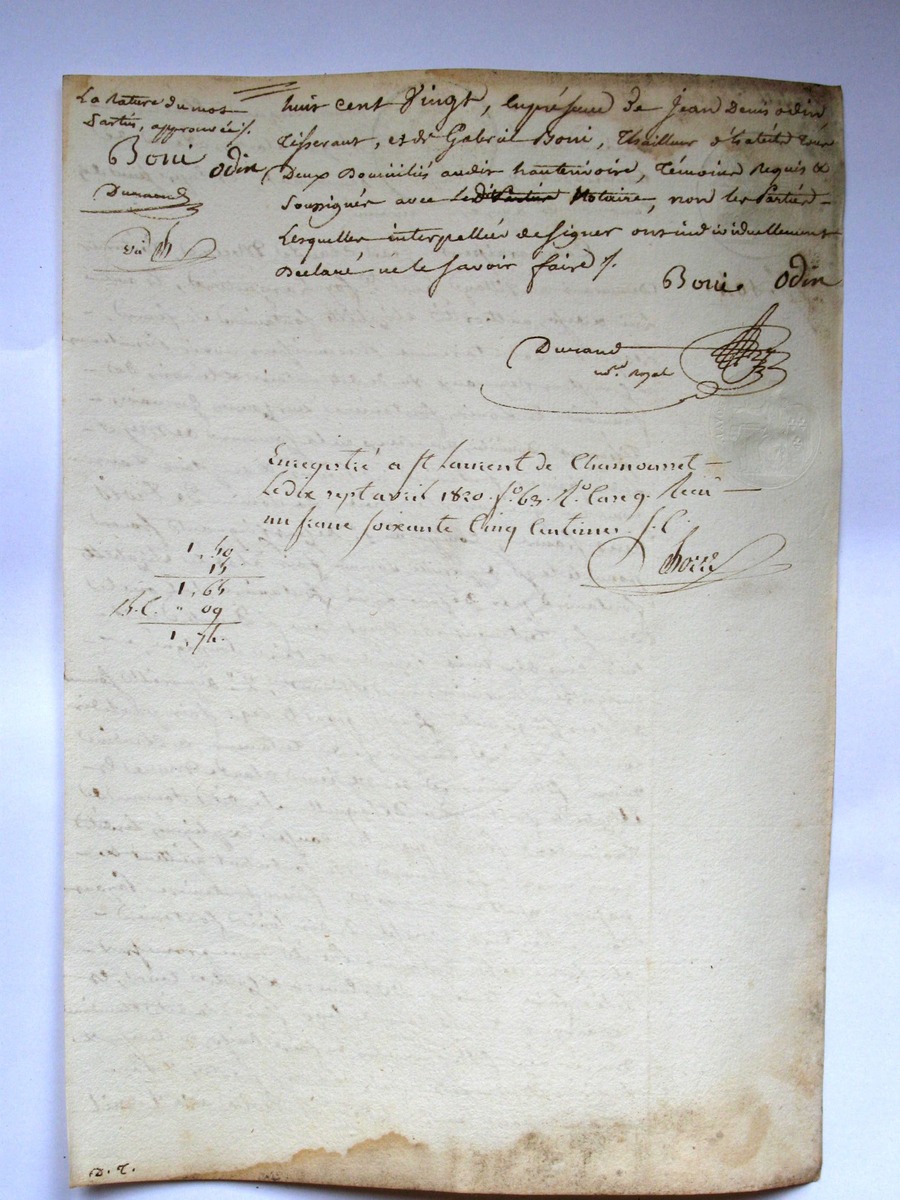 La Rature du mot
Parties, approuvée /.
Boni
odin
Durand
huit cent Vingt, En présence de Jean Denis odin,
Tisserant, et de Gabriel Boni, Thailleur d'habits tous
Deux Domiciliés audit hauterivoire, Témoins Requis &
Soussignés avec Le Notaire, non les Parties
Lesquelles interpellées de signer ont individuellement
Déclaré ne le savoir faire /.
Boni
odin
Durand
not. Royal
Enregistré a St Laurent de Chamousset
Le dix sept avril 1820. fo. 63. Ro. Case 9. Reçu
un franc soixante Cinq Centimes
1,50
15
1,65
" 09
1,74.